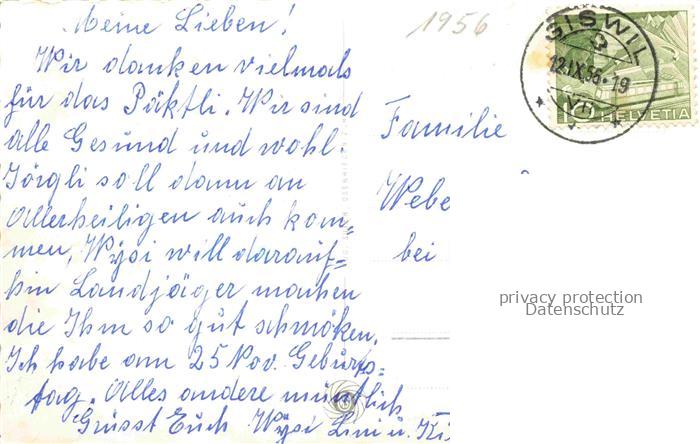 Meine Lieben!
Wir danken vielmals
für das Päktli. Wir sind
alle Gesund und wohl
Jörgli soll dann an
Allerheiligen auch kom-
men, Wysi will darauf=
hin Landjäger machen
die Ihm so gut schmöken.
Ich habe am 25 Nov. Geburts=
tag. Alles andere mündlich
Grüsst Euch Wysi Lini u. Ki
1956
GISWIL
12.IX.56.-19
VII
10 HELVETIA
Familie
Webe
bei
privacy protection
Datenschutz